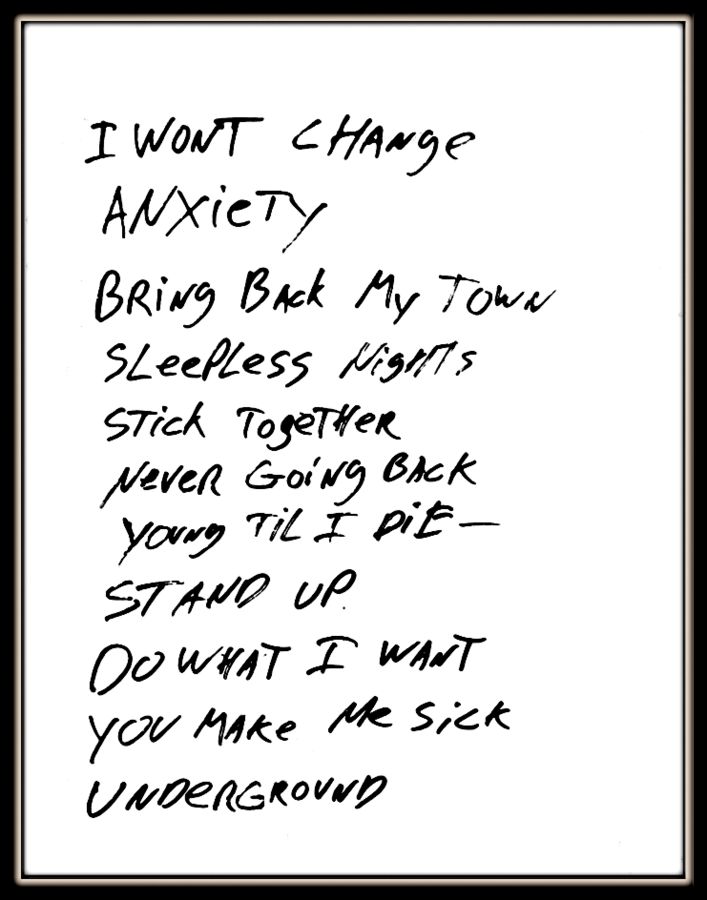 I WONT CHANge
ANXieTY
BRiNg BACk My TOWN
SLeePLess NigHTs
STick TogeTHeR
NeveR GoiNg BACK
YouNg TiL I DiE—
STAND UP.
DO WHAT I WANT
YOU MAKe Me SiCK
UNDeRGROUND